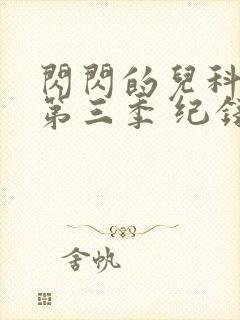 閃閃的兒科
第三季 纪
舍帆